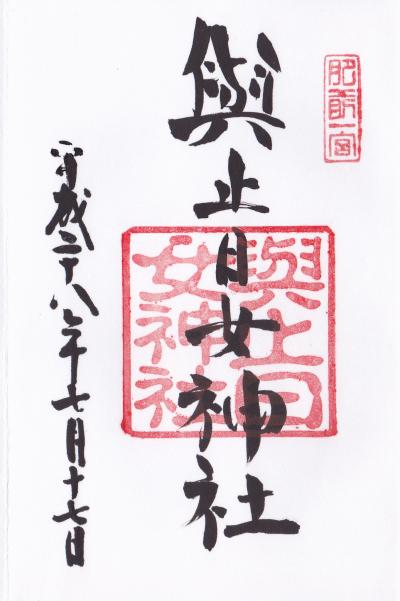 肥前一宮
與止日女神社
與止日
女神社
平成二十八年七月十七日